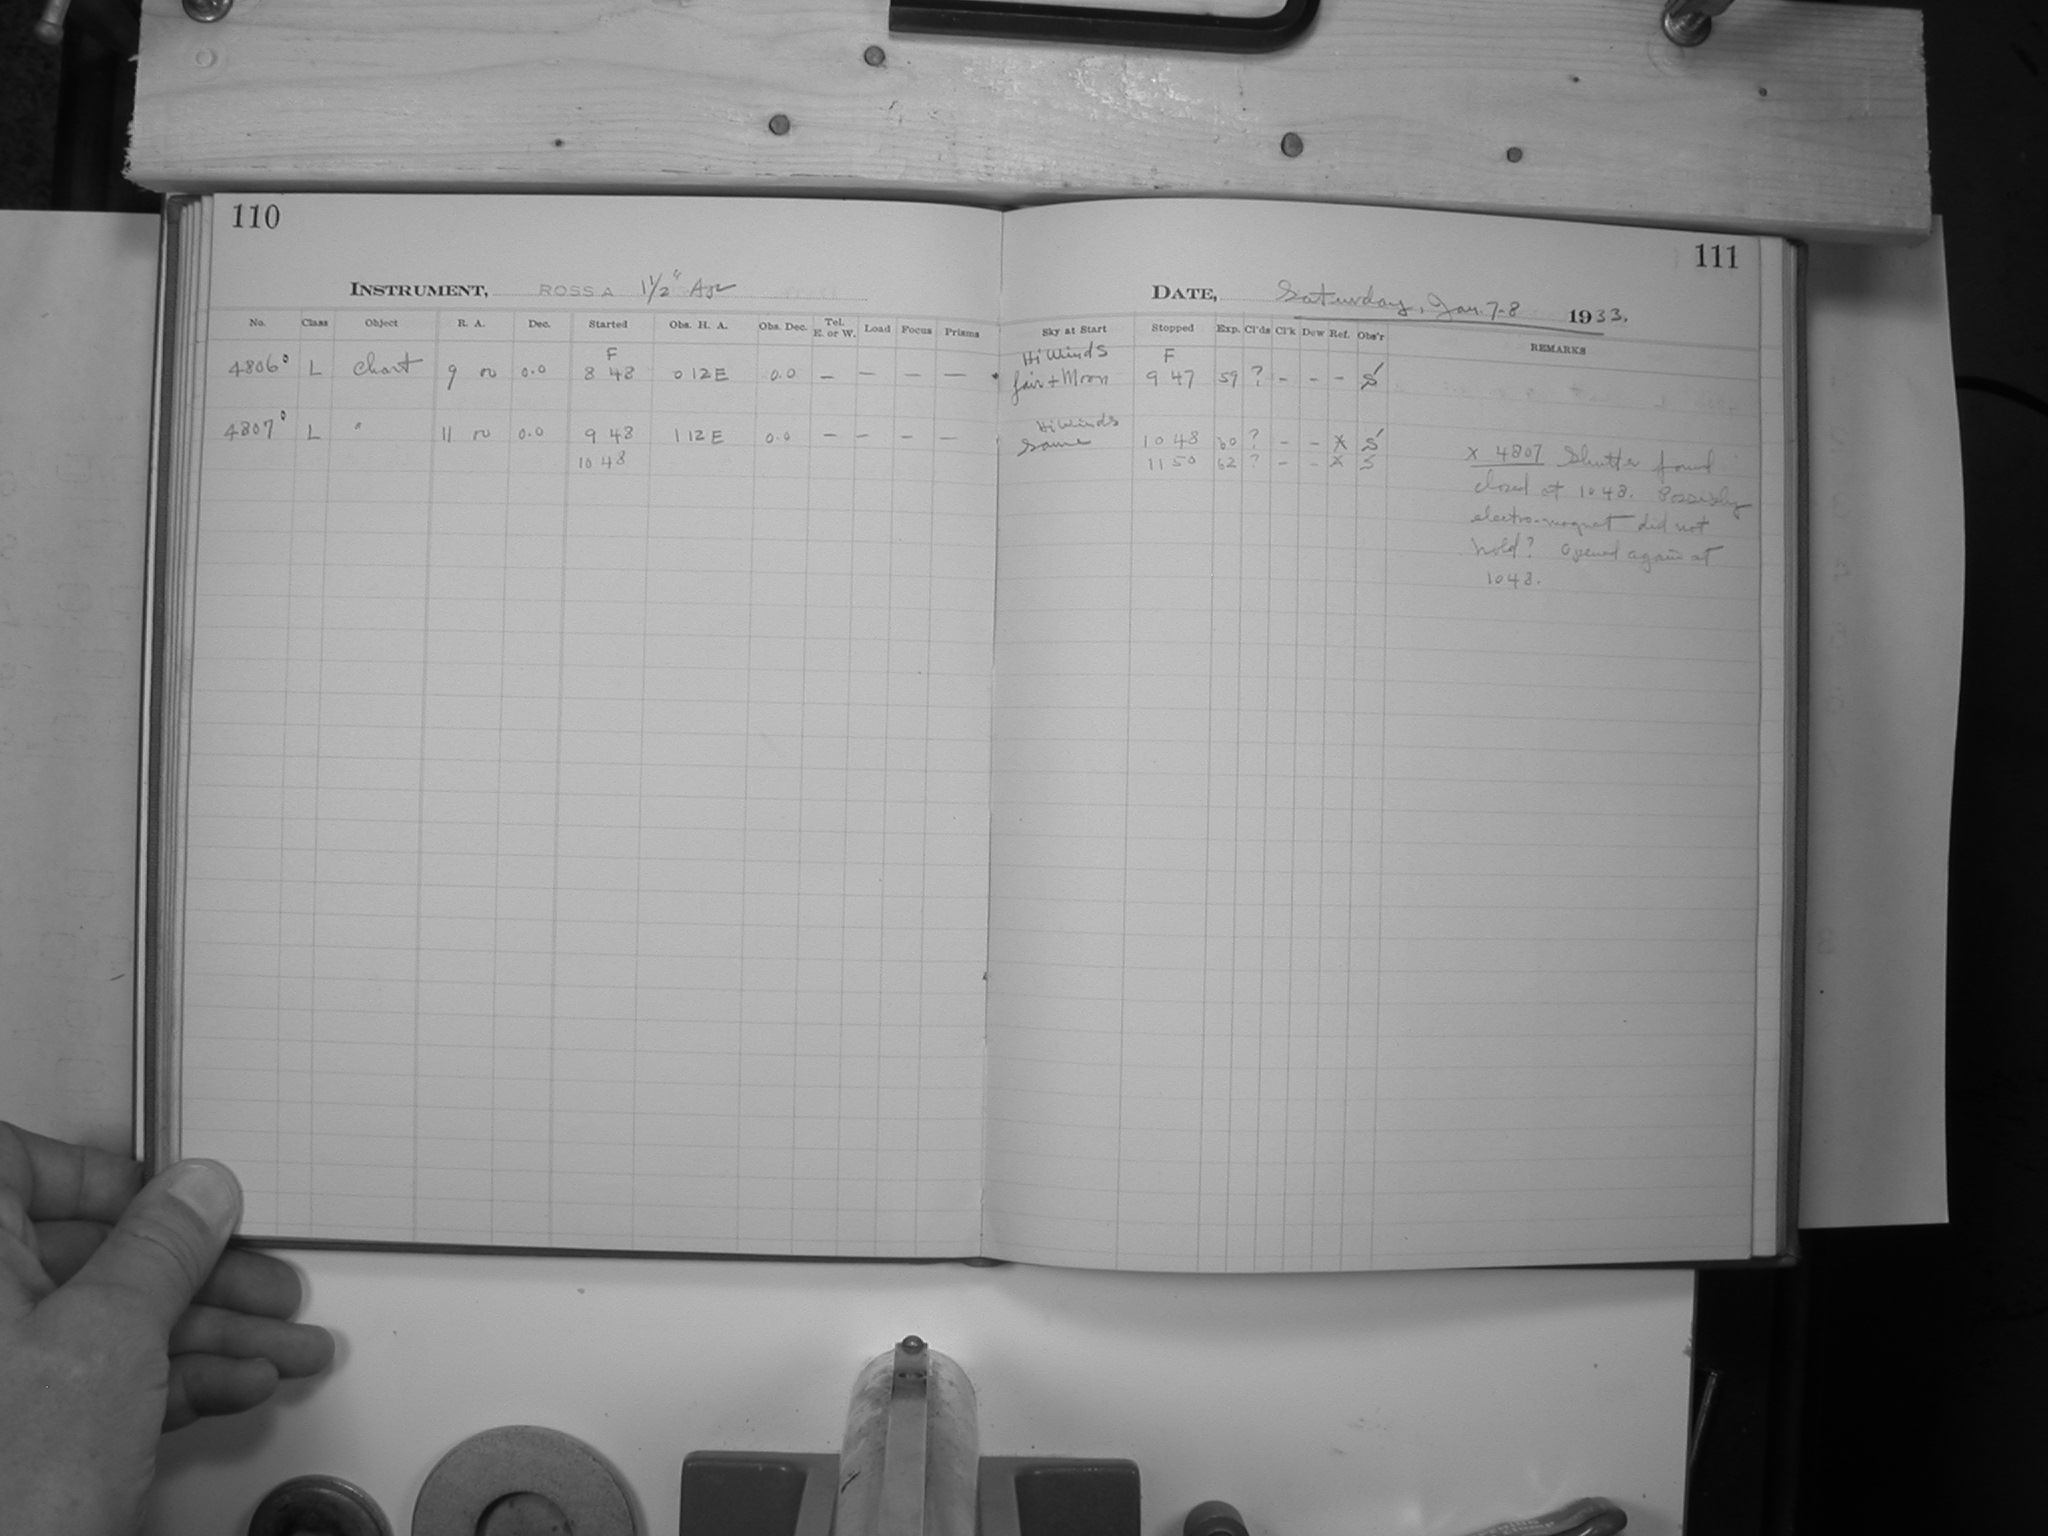 110
111
INSTRUMENT, ROSS A 1½" Apr
DATE, Saturday, Jan. 7-8 1933.
No. Class Object R. A. Dec. Started Obs. H. A. Obs. Dec. Tel. E. or W. Load Focus Prisms Sky at Start Stopped Exp. Cl'ds Cl'k Dew Ref. Obs'r REMARKS
F Hi Winds F
4806° L Chart 9 00 0.0 8 48 0 12 E 0.0 — — — — fair + Moon 9 47 59 ? - - - S
Hi Winds
4807° L " 11 00 0.0 9 48 1 12 E 0.0 — — — — Same 10 48 60 ? - - X S
10 48 11 50 62 ? - - X S
X 4807 Shutter found
closed at 10 48. Possibly
electro-magnet did not
hold? Opened again at
10 48.